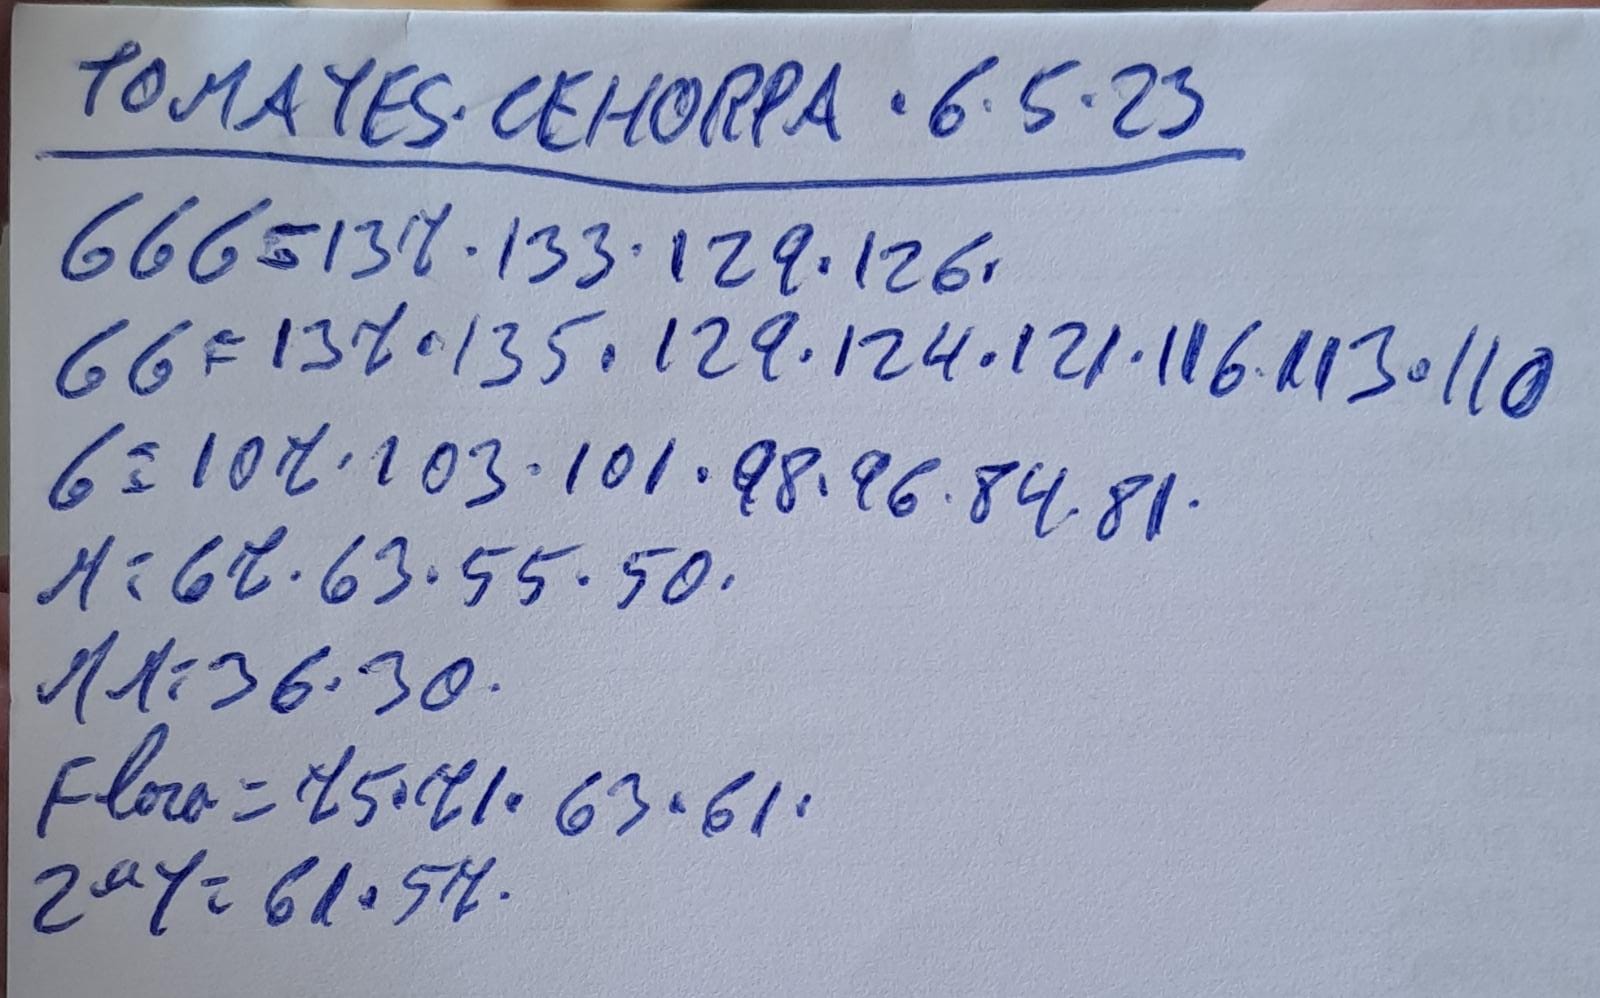 TOMATES·CEHORPA·6·5·23
GGG=137·133·129·126·
GG=137·135·129·124·121·116·113·110
G=107·103·101·98·96·84·81·
M=67·63·55·50·
MM=36·30·
Flora=75·71·63·61·
2ªT=61·57·